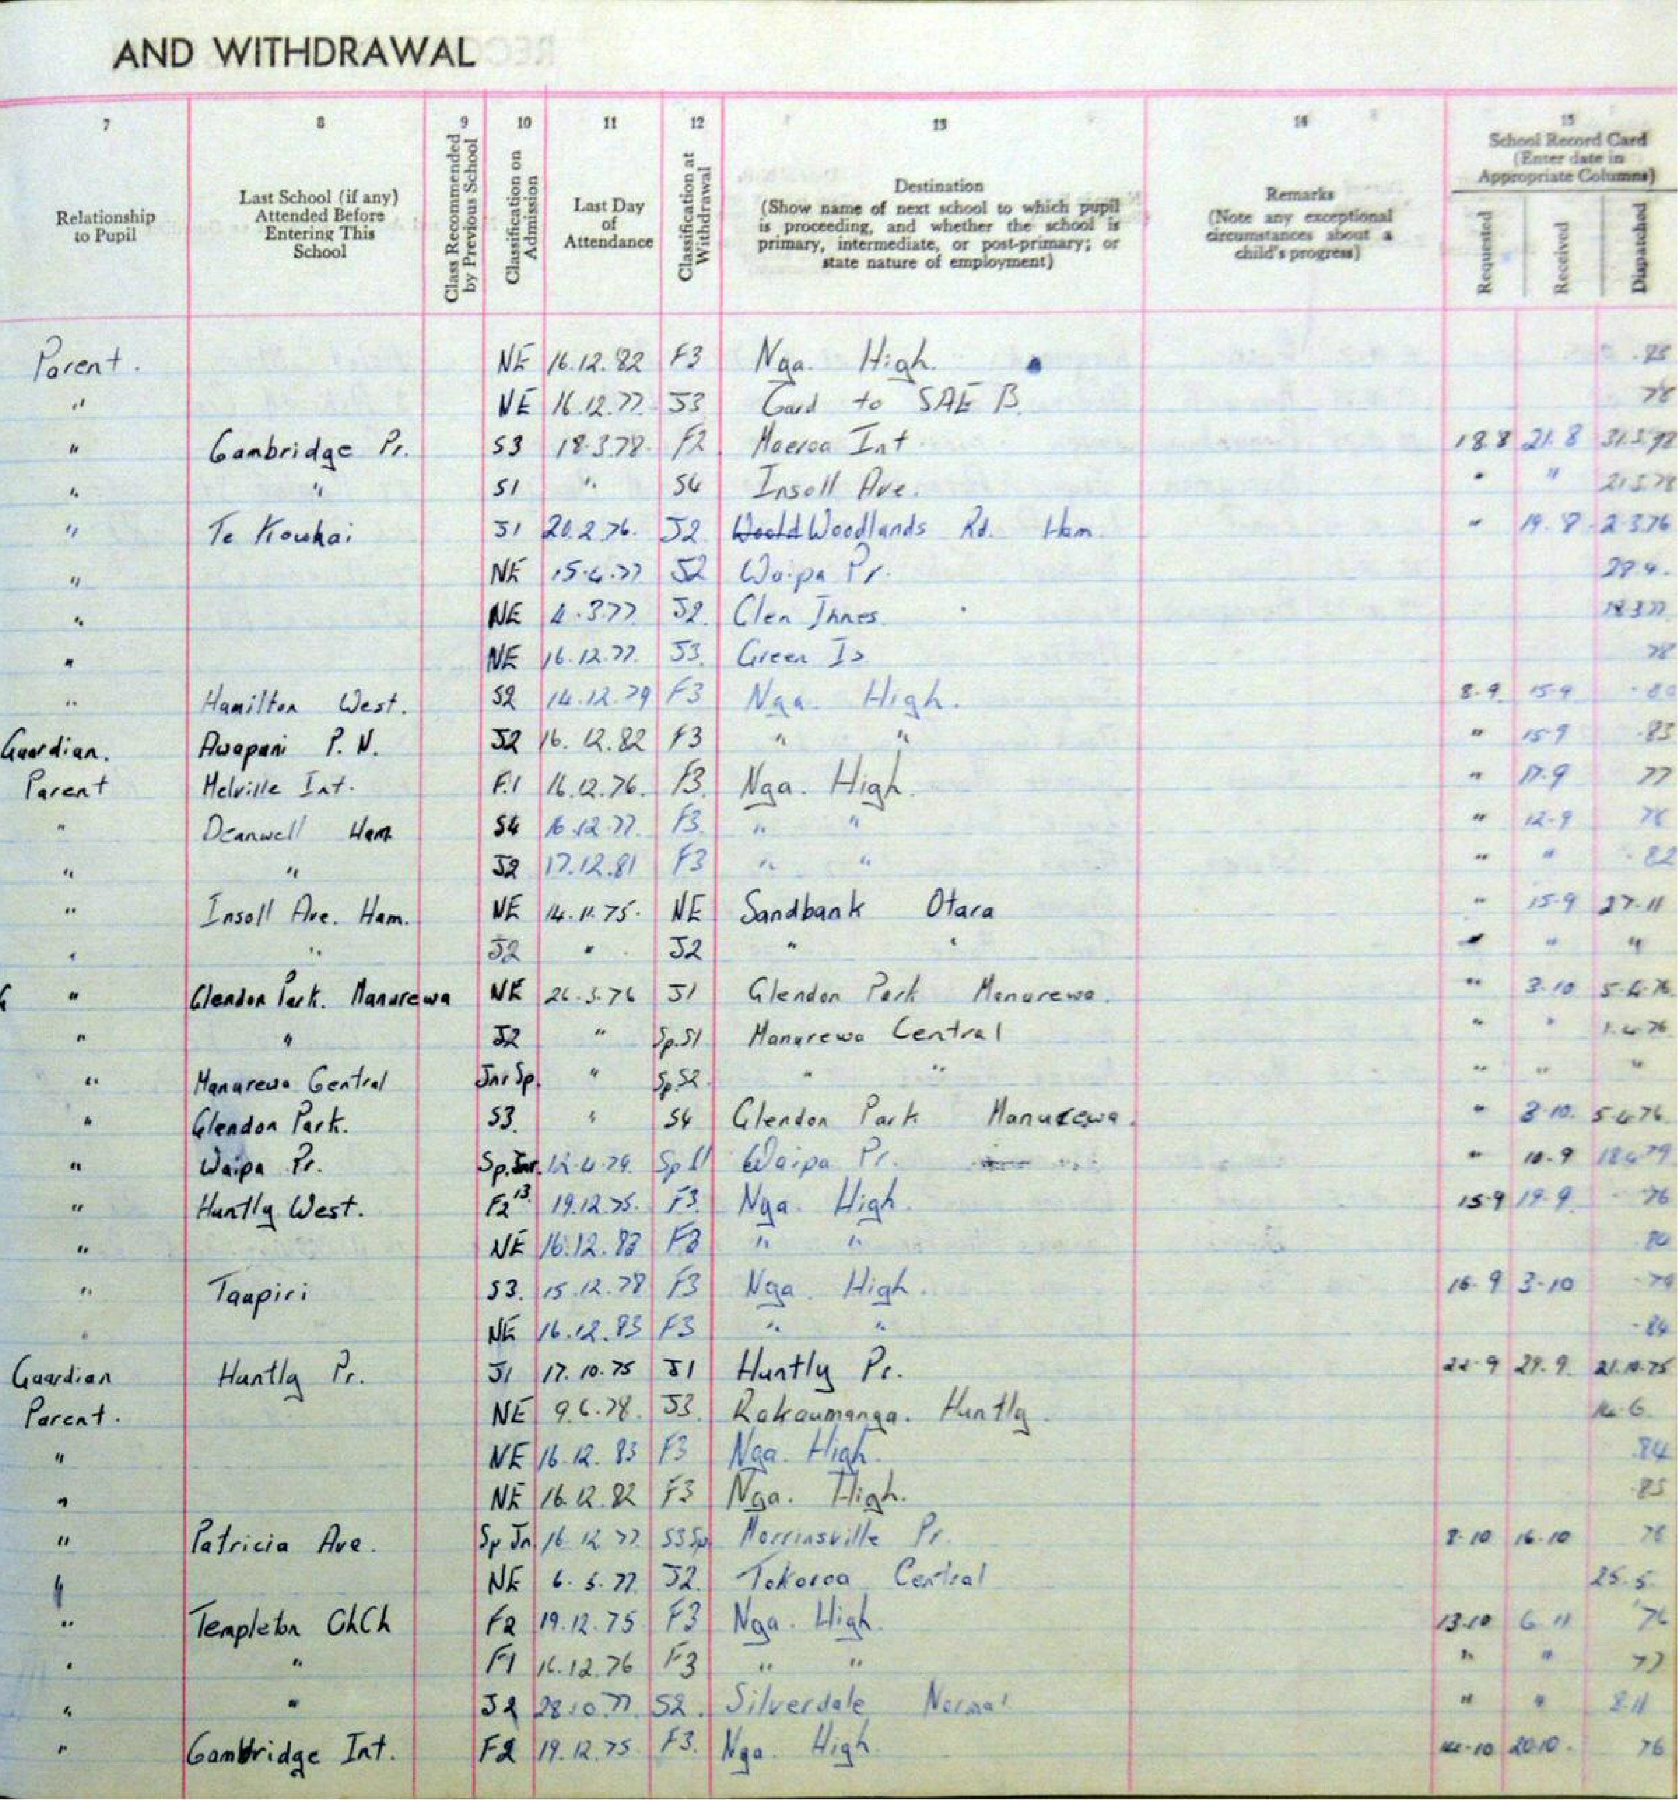 AND WITHDRAWAL
7 8 9 10 11 12 13 14 15
Relationship to Pupil
Last School (if any) Attended Before Entering This School
Class Recommended by Previous School
Classification on Admission
Last Day of Attendance
Classification at Withdrawal
Destination (Show name of next school to which pupil is proceeding, and whether the school is primary, intermediate, or post-primary; or state nature of employment)
Remarks (Note any exceptional circumstances about a child's progress)
School Record Card (Enter date in Appropriate Columns)
Requested Received Dispatched
Parent. NE 16.12.82 F3 Nga. High.
" NE 16.12.77 J3 Card to SAE B 78
" Cambridge Pr. S3 F2 Maeroa Int 18.8 21.8
" " S1 " S4 Insoll Ave. " "
" Te Kowhai J1 20.2.76. J2 Woodlands Rd. Ham " 19.8 2.3.76
" NE 15.4.77 J2 Waipa Pr. 29.4.
" NE 4.3.77 J2. Glen Innes. 18.3.77
" NE 16.12.77. J3. Green Is 78
" Hamilton West. S2 14.12.79 F3 Nga. High. 8.9 15.9 80
Guardian. Awapuni P.N. J2 16.12.82 F3 " " " 15.9 83
Parent Melville Int. F.1 16.12.76. F3. Nga. High. " 17.9 77
" Deanwell Ham S4 16.12.77. F3. " " " 12.9 78
" " J2 17.12.81 F3 " " " " 82
" Insoll Ave. Ham. NE 14.11.75. NE Sandbank Otara " 15.9 27.11
" " J2 " J2 " " " "
" Glendon Park. Manurewa NE 26.3.76 J1 Glendon Park Manurewa. " 3.10 5.4.76
" " J2 " Sp.S1 Manurewa Central " " 1.4.76
" Manurewa Central Jnr Sp. " Sp.S2 " " " " "
" Glendon Park. S3. " S4 Glendon Park Manurewa. " 3.10. 5.4.76
" Waipa Pr. Sp.Jnr. 12.4.79. Waipa Pr. " 10.9
" Huntly West. F2 13 19.12.75. F3. Nga. High. 15.9 19.9 76
" NE 16.12.83 F3 " " 84
" Taupiri S3. 15.12.78 F3 Nga. High. 16.9 3.10 79
" NE 16.12.83 F3 " " 84
Guardian Huntly Pr. J1 17.10.75 J1 Huntly Pr. 22.9 29.9. 21.10.75
Parent. NE 9.6.78. J3. Rakaumanga. Huntly. 14.6.
" NE 16.12.83 F3 Nga. High. 84
" NE 16.12.82 F3 Nga. High. 83
" Patricia Ave. Sp Jn 16.12.77 S3Sp Morrinsville Pr. 8.10 16.10 78
" NE 6.5.77. J2. Tokoroa Central 25.5.
" Templeton ChCh F2 19.12.75 F3 Nga. High. 13.10 6.11 76
" " F1 16.12.76 F3 " " " " 77
" " J2 28.10.77. S2. Silverdale Normal " " 8.11
" Cambridge Int. F2 19.12.75 F3. Nga. High. 14.10 20.10. 76